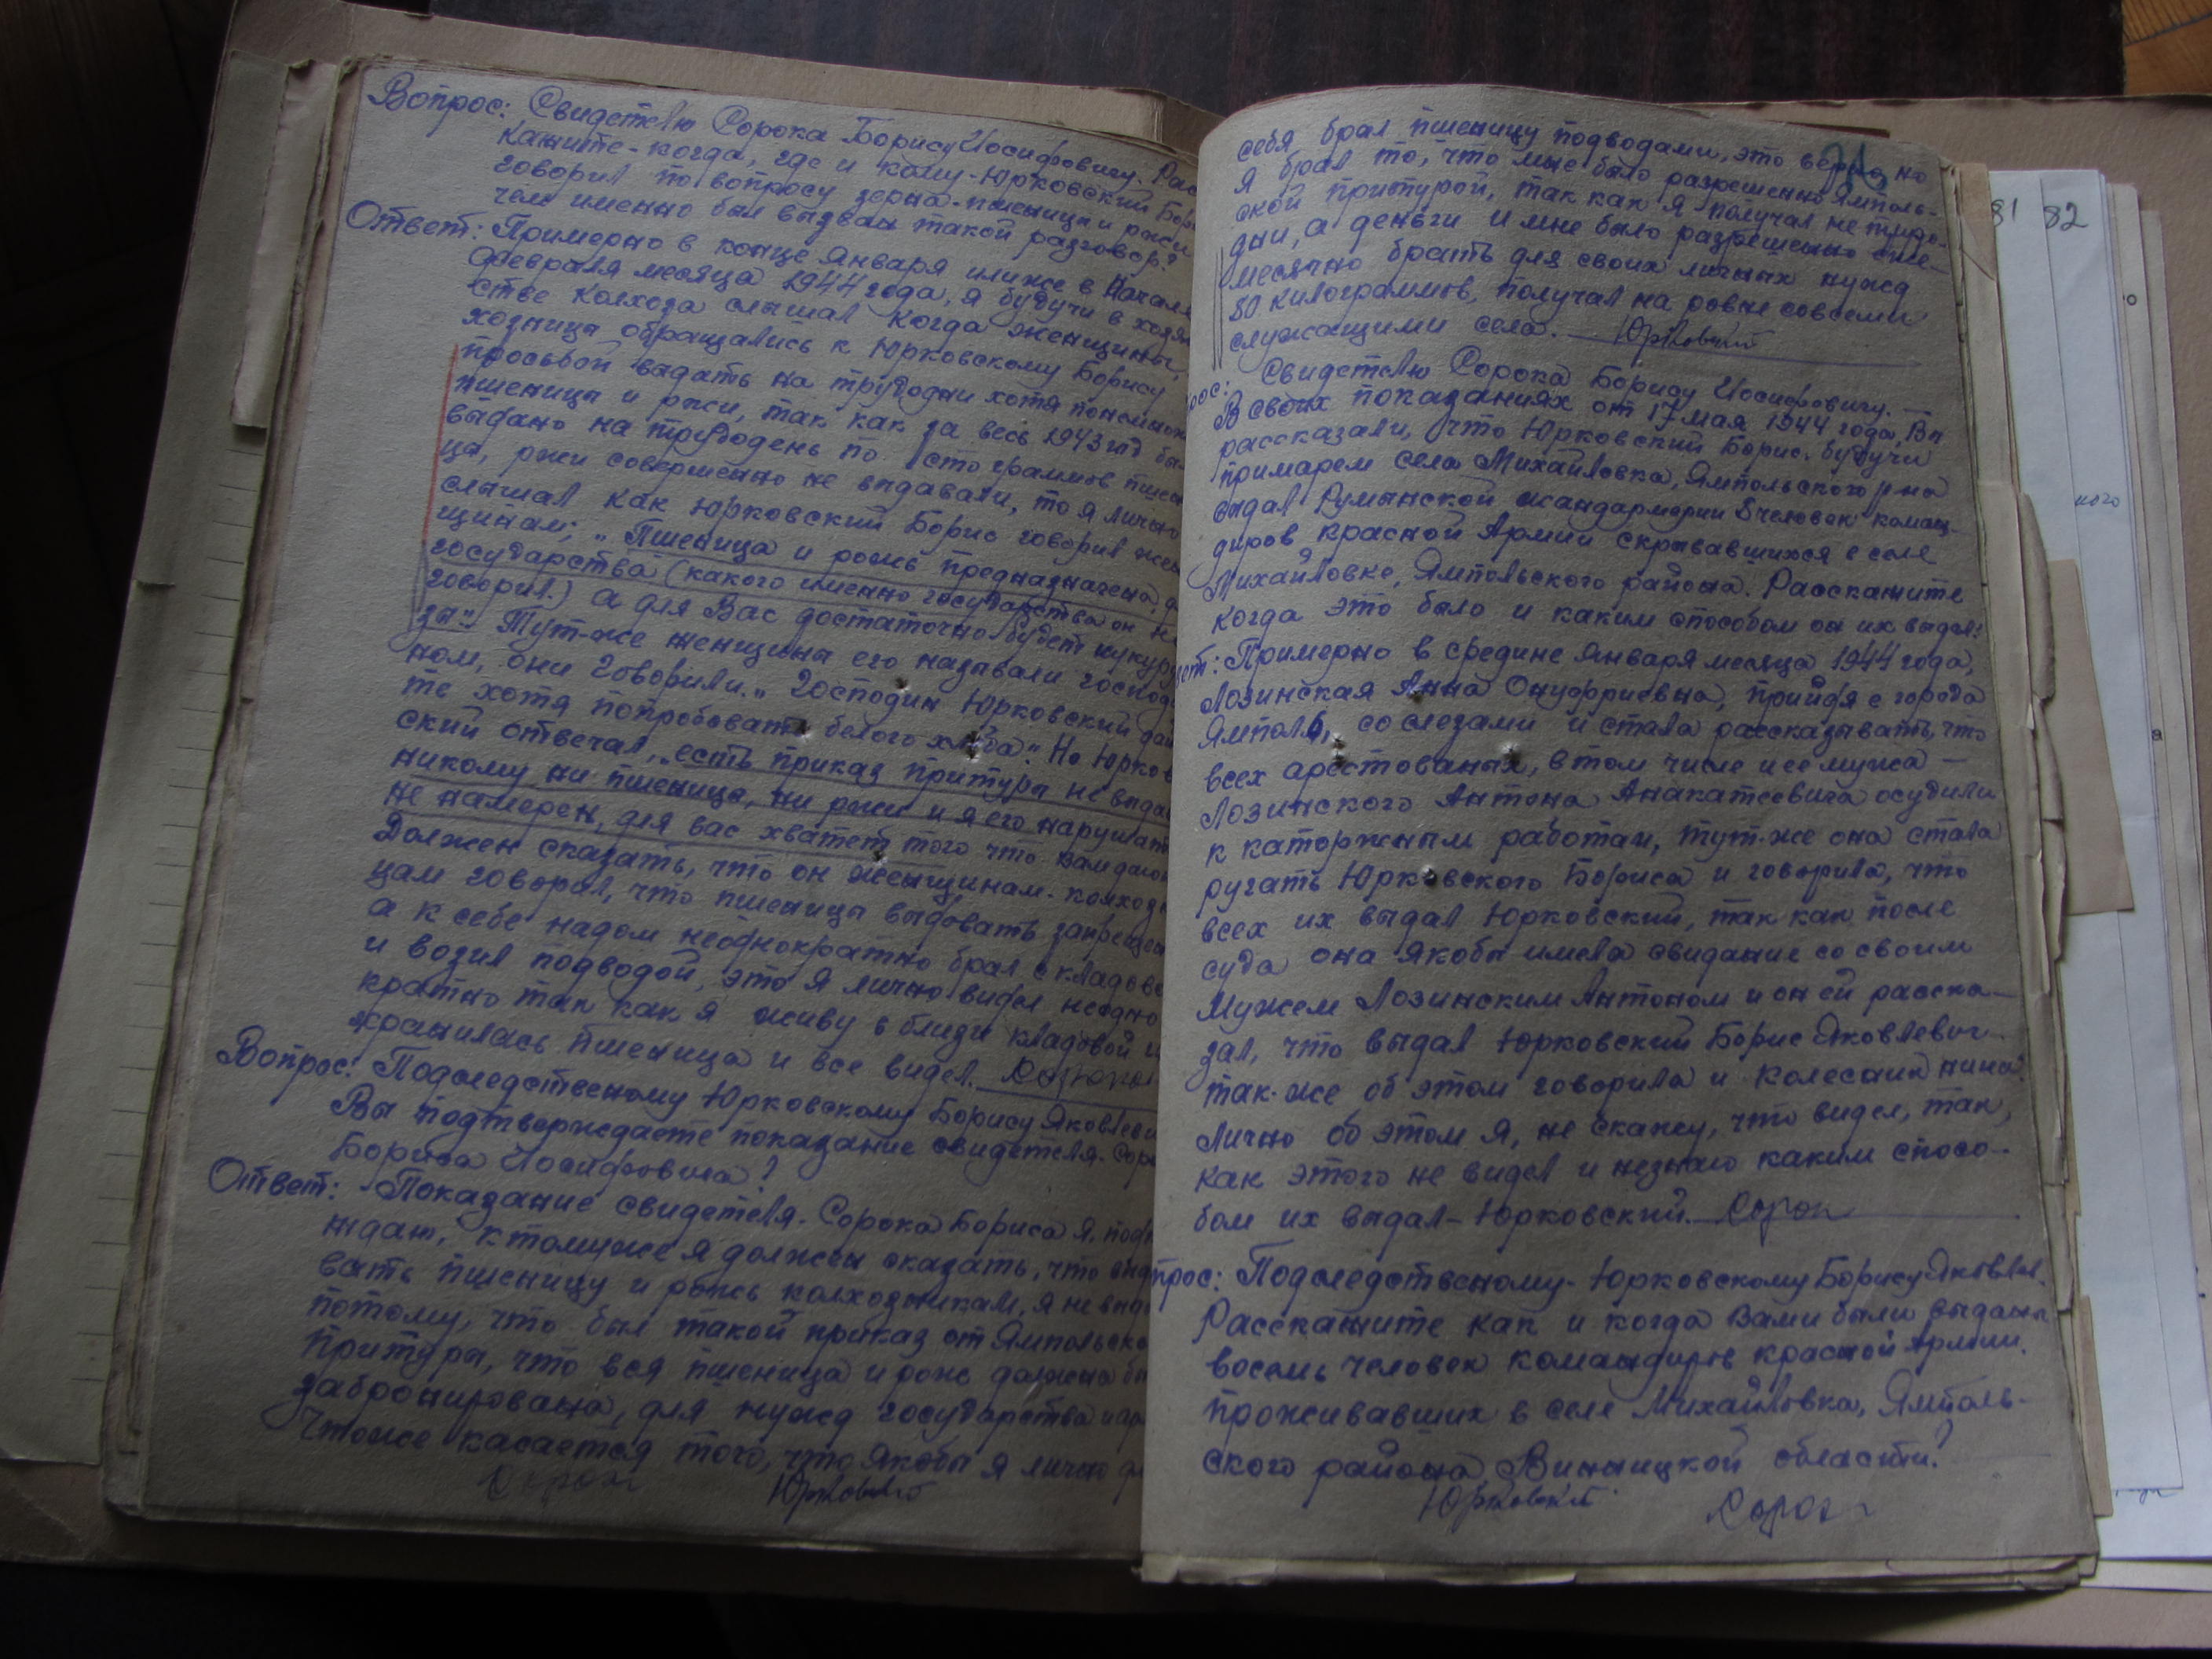 Вопрос: Свидетелю Сорока Борису Иосифовичу. Рас
кажите - когда, где и кому - Юрковский Бори
говорил по вопросу зерна - пшеницы и ржи
чем именно был вызван такой разговор?
Ответ: Примерно в конце Января или же в Начале
Февраля месяца 1944 года, я будучи в хозяй
стве колхоза слышал когда женщины,
хозницы обращались к Юрковскому Борису
просьбой выдать на трудодни хотя понемно
пшеницы и ржи, так как за весь 1943 год был
выдано на трудодень по сто граммов пшен
ца, ржи совершенно не выдавали, то я лично
слышал как Юрковский Борис говорил жен
щинам; „Пшеница и рожь предназначена, д
государства (какого именно государства он не
говорил.) а для Вас достаточно будет кукуру
зы". Тут-же женщины его называли господи
ном, они говорили. „Господин Юрковский дай
те хотя попробовать белого хлеба". Но Юрков
ский отвечал, „есть приказ притуры не выдав
никому ни пшеницы, ни ржи и я его нарушать
не намерен, для вас хватет того что вам дают
Должен сказать, что он женщинам - колхоз
цам говорил, что пшеницы выдовать запрещен
а к себе надом неоднократно брал с кладово
и возил подводой, это я лично видел неодно
кратно так как я живу в близи кладовой и
хранилась пшеница и все видел. Сорока
Вопрос: Подследственому Юрковскому Борису Яковлеви
Вы подтверждаете показание свидетеля - Соро
Бориса Иосифовича?
Ответ: Показание свидетеля. Сорока Бориса я, подт
ждаю, к тому же я должен сказать, что выд
вать пшеницу и рожь колхозникам, я не выда
потому, что был такой приказ от Ямпольско
притуры, что вся пшеница и рожь должна бы
забронирована, для нужд государства и ар
Чтоже касается того, что якобы я лично дл
Сорок Юрковский
себя брал пшеницу подводами, это верно, но
я брал то, что мне было разрешенно Ямполь-
ской притурой, так как я получал не трудо-
дни, а деньги и мне было разрешенно еже-
месячно брать для своих личных нужд
80 килограммов, получал на ровне со всеми
служащими села. Юрковский
рос: Свидетелю Сорока Борису Иосифовичу. —
В своих показаниях от 17 мая 1944 года, Вы
рассказали, что Юрковский Борис. будучи
примарем села Михайловка, Ямпольского р-на
выдал Румынской жандармерии 8 человек коман-
диров красной Армии скрывавшихся в селе
Михайловке, Ямпольского района. Расскажите
когда это было и каким способом он их выдал?
ет: Примерно в средине Января месяца 1944 года,
Лозинская Анна Онуфриевна, прийдя с города
Ямполь, со слезами и стала рассказывать, что
всех арестованых, в том числе и ее мужа —
Лозинского Антона Анакатеевича осудили
к каторжным работам, тут-же она стала
ругать Юрковского Бориса и говорила, что
всех их выдал Юрковский, так как после
суда она якобы имела свидание со своим
Мужем Лозинским Антоном и он ей расска-
зал, что выдал Юрковский Борис Яковлевич
так-же об этом говорила и Колесник нина.
Лично об этом я, не скажу, что видел, так,
как этого не видел и незнаю каким спосо-
бом их выдал - Юрковский. Сорок
прос: Подследственому - Юрковскому Борису Яковлев.
Расскажите как и когда вами были выданы
восемь человек командиров красной Армии.
проживавших в селе Михайловка, Ямполь-
ского района, Винницкой области?
Юрковский Сорок
81 82
ного
о
а